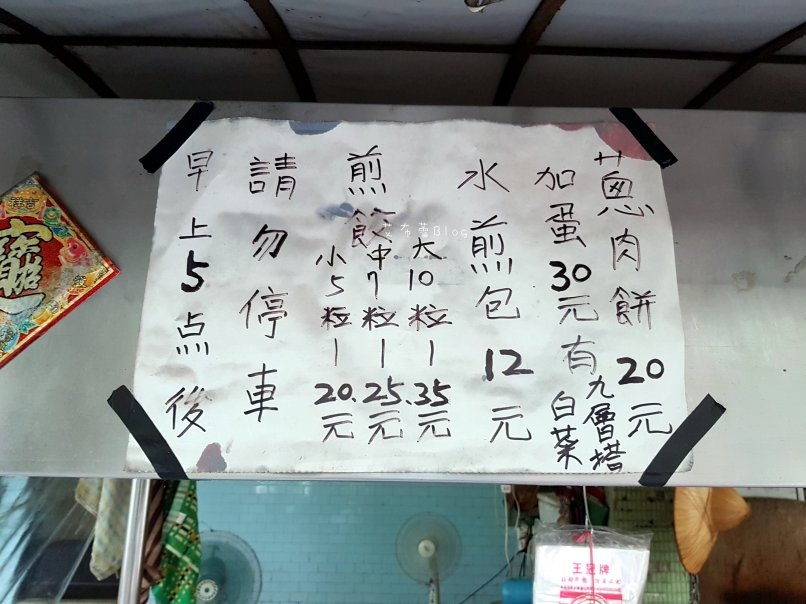 蔥肉餅20元
加蛋30元有九層塔
白菜
水煎包12元
煎餃
大10粒—35元
中7粒—25元
小5粒—20元
請勿停車
早上5点後
Blog
王冠牌